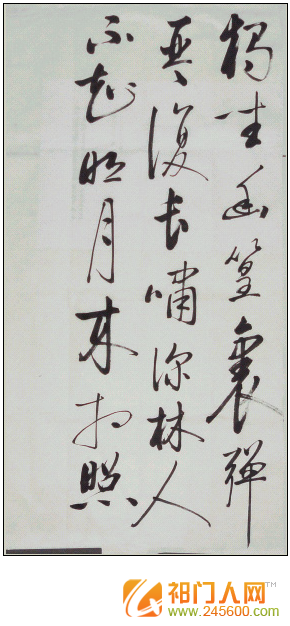 独坐幽篁裏彈
琴復長嘯深林人
不知明月来相照
祁门人网™
www.245600.com